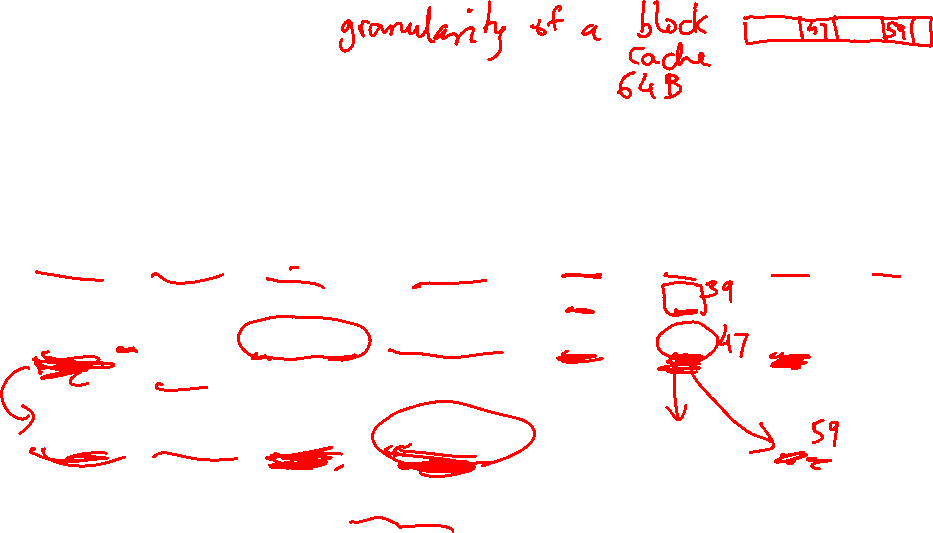 granularity of a block
cache
64B
47 59
39
47
59